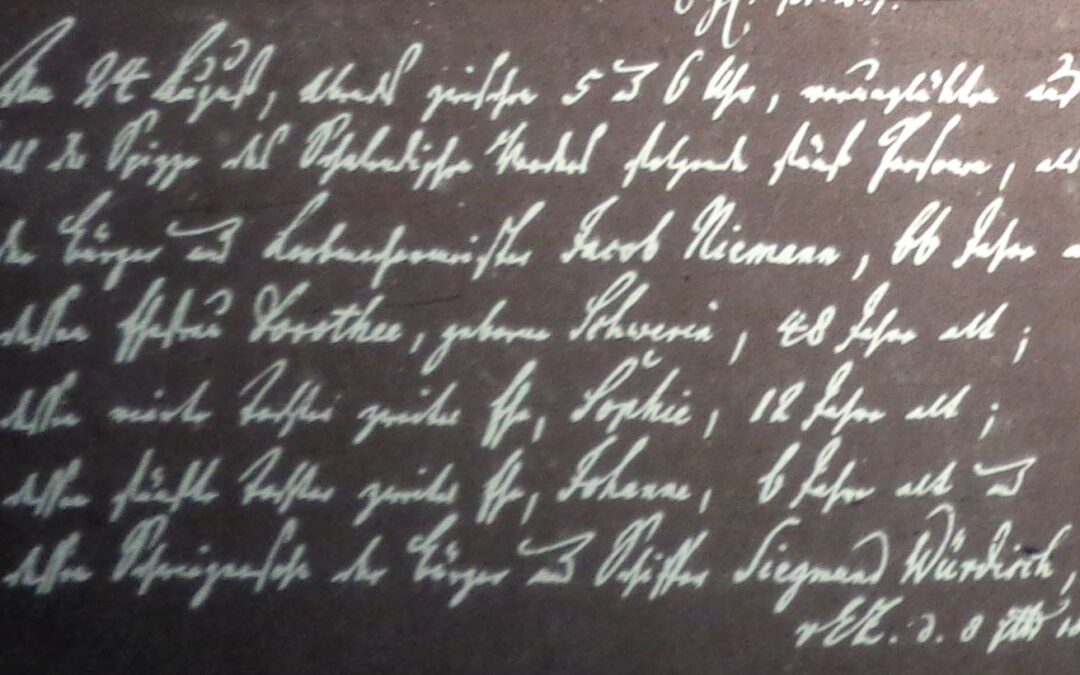 Am 24 August, Abends zwischen 5 u 6 Uhr, verunglükten
der Spizze des folgende fünf Personen,
der Bürger und Jacob Niemann, 66 Jahre
dessen Ehefrau Dorothee, geborne Schwerin, 48 Jahre alt;
dessen vierte Tochter zweiter Ehe, Sophie, 12 Jahre alt;
dessen fünfte Tochter zweiter Ehe, Johanne, 6 Jahre alt und
dessen Schwiegersohn der Bürger und Schiffer Siegmund Würdisch,
d. 8